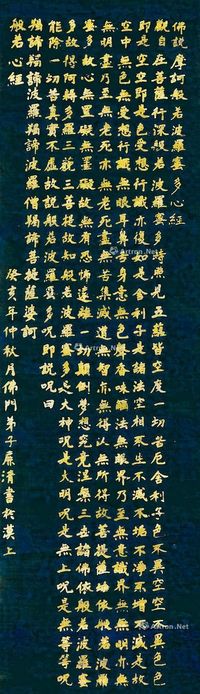 佛說摩訶般若波羅蜜多心經
觀自在菩薩行深般若波羅蜜多時照見五蘊皆空度一切苦厄舍利子色不異空空不異色色
即是空空即是色受想行識亦復如是舍利子是諸法空相不生不滅不垢不淨不增不減是故
空中無色無受想行識無眼耳鼻舌身意無色聲香味觸法無眼界乃至無意識界無無明亦無
無明盡乃至無老死亦無老死盡無苦集滅道無智亦無得以無所得故菩提薩埵依般若波羅
蜜多故心無罣礙無罣礙故無有恐怖遠離一切顛倒夢想究竟涅槃三世諸佛依般若波羅蜜
多故得阿耨多羅三藐三菩提故知般若波羅蜜多是大神呪是大明呪是無上呪是無等等呪
能除一切苦真實不虛故說般若波羅蜜多呪即說呪曰
羯諦羯諦波羅羯諦波羅僧羯諦菩提薩婆訶
般若心經
癸亥年仲秋月佛門弟子廉清書於漢上
Artron.Net